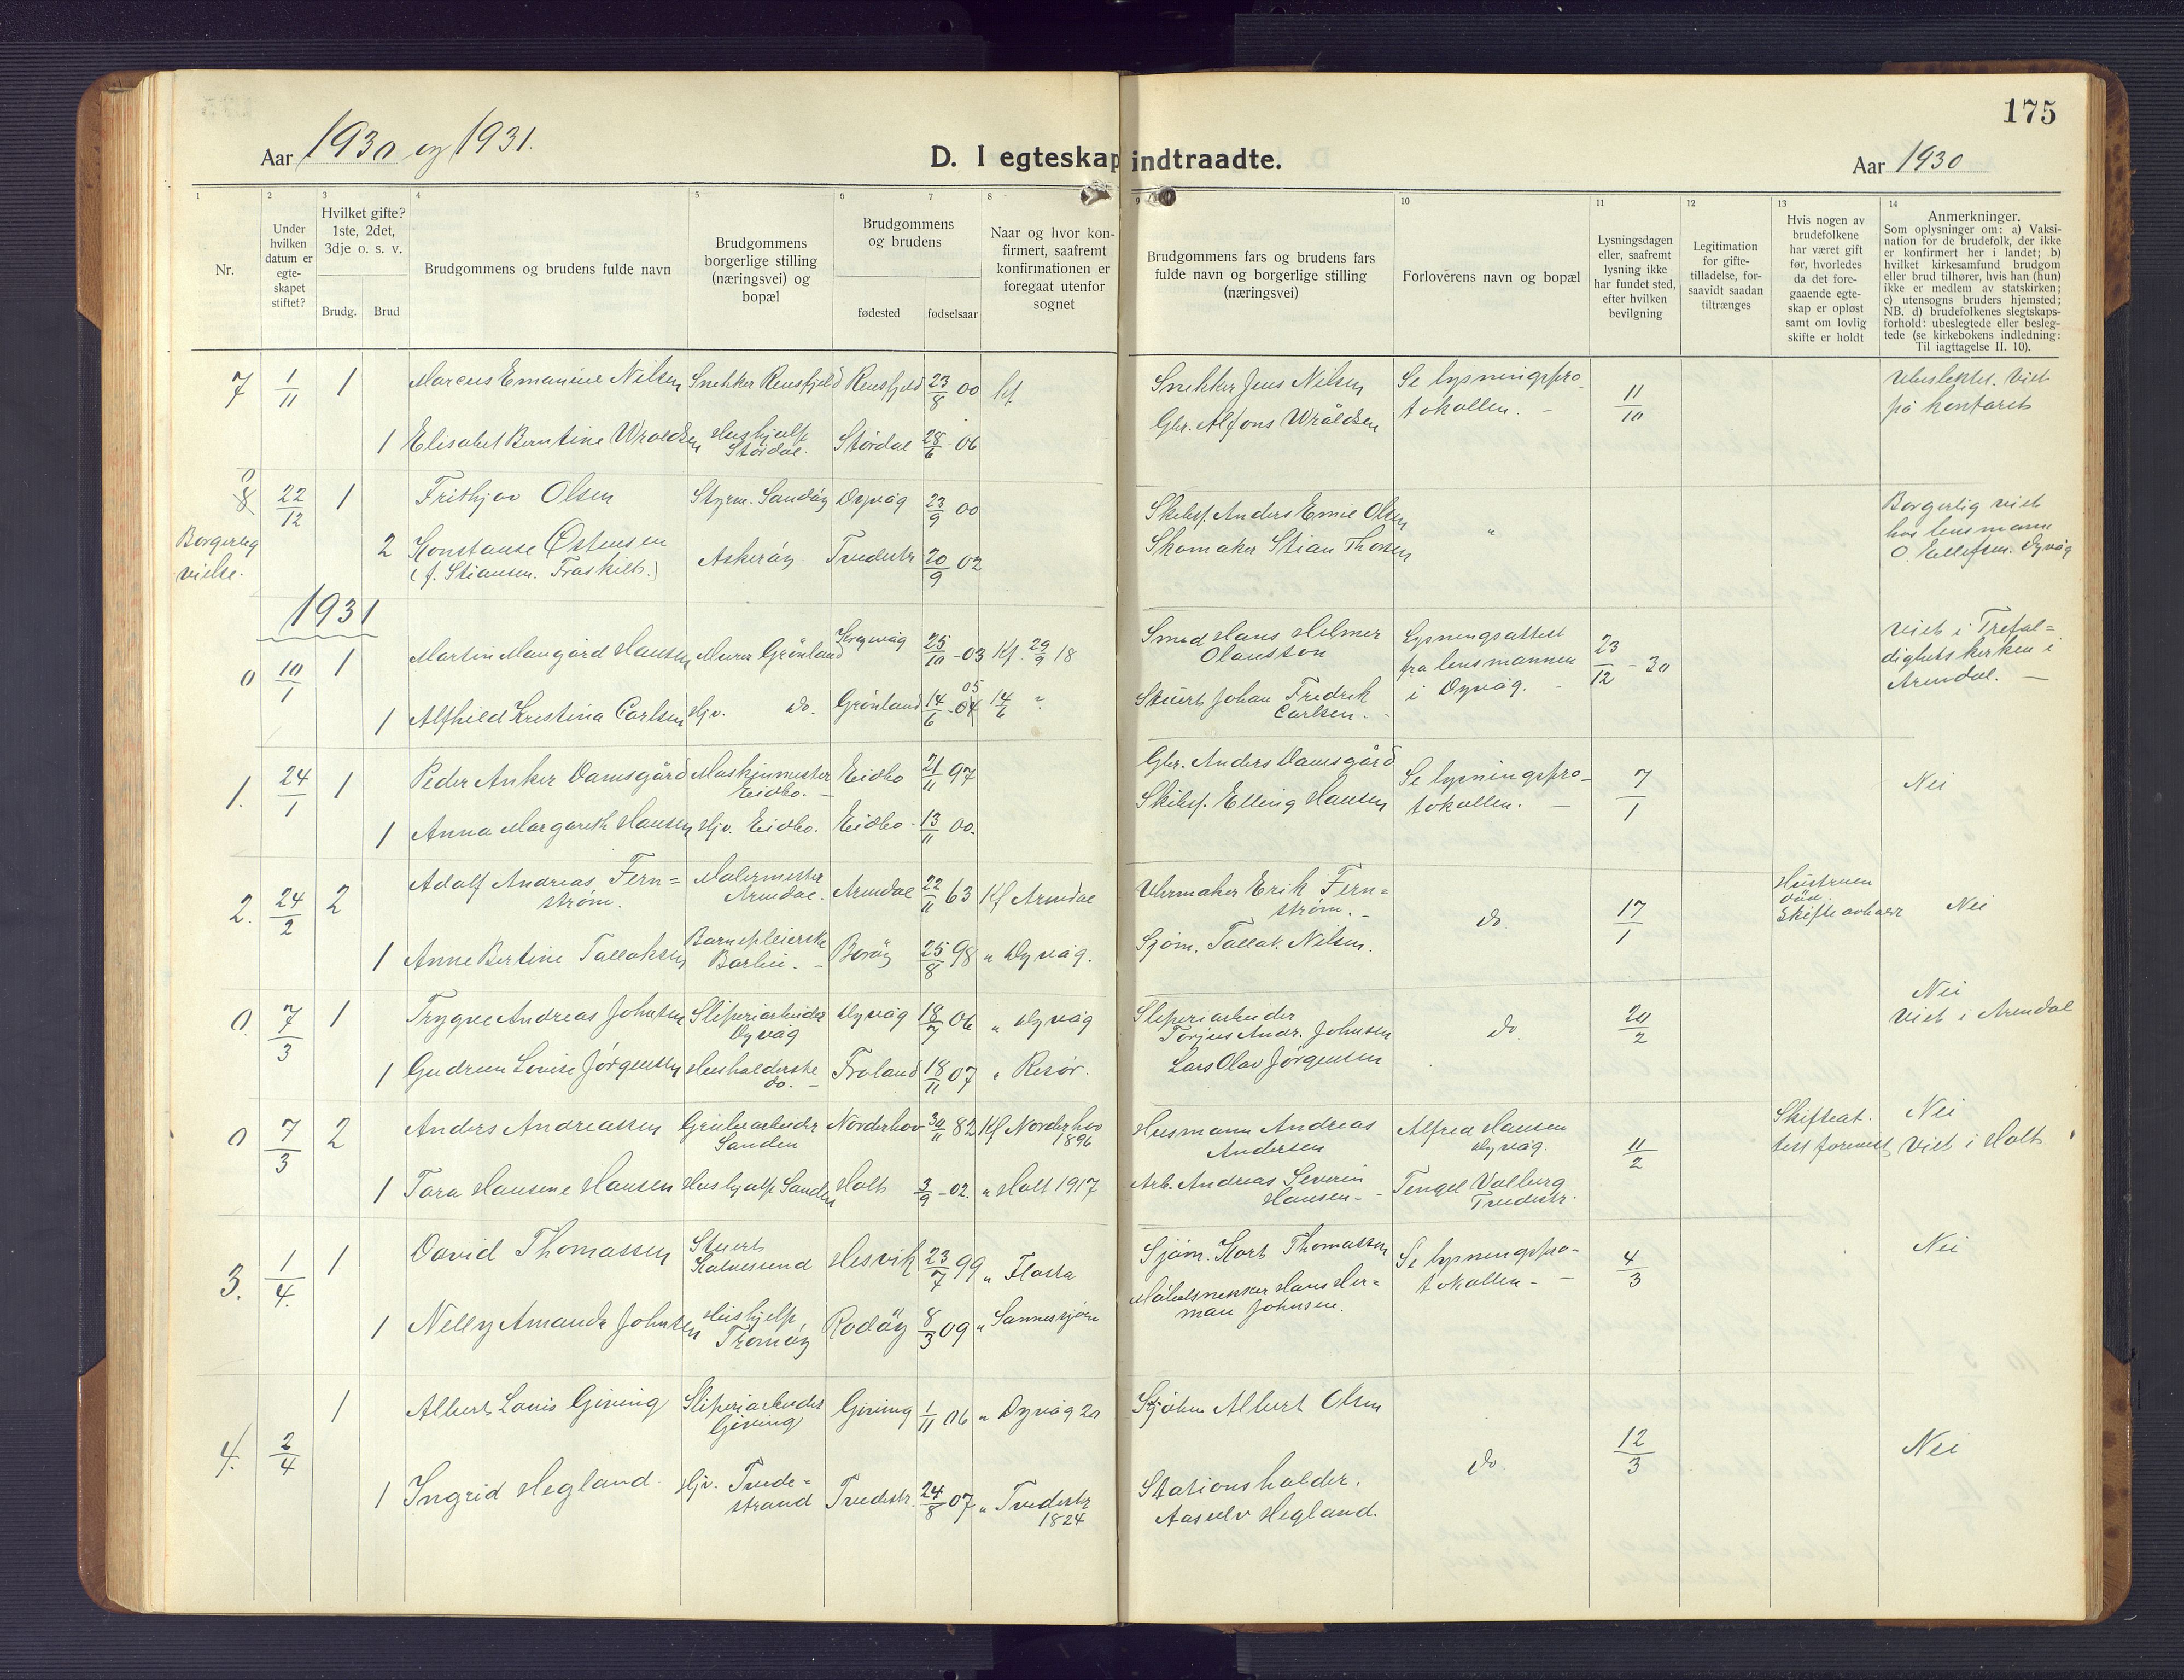 175
Aar 1930 og 1931.
D. I egteskap indtraadte.
Aar 1930
1
2
3
4
5
6
7
8
9
10
11
12
13
14
Nr.
Under
hvilken
datum er
egte-
skapet
stiftet?
Hvilket gifte?
1ste, 2det,
3dje o. s. v.
Brudg.
Brud
Brudgommens og brudens fulde navn
Brudgommens
borgerlige stilling
(næringsvei) og
bopæl
Brudgommens
og brudens
fødested
fødselsaar
Naar og hvor kon-
firmert, saafremt
konfirmationen er
foregaat utenfor
sognet
Brudgommens fars og brudens fars
fulde navn og borgerlige stilling
(næringsvei)
Forloverens navn og bopæl
Lysningsdagen
eller, saafremt
lysning ikke
har fundet sted,
efter hvilken
bevilgning
Legitimation
for gifte-
tilladelse, for-
saavidt saadan
tiltrænges
Hvis nogen av
brudefolkene
har været gift
før, hvorledes
da det fore-
gaaende egte-
skap er opløst
samt om lovlig
skifte er holdt
Anmerkninger.
Som oplysninger om: a) Vaksi-
nation for de brudefolk, der ikke
er konfirmert her i landet; b)
hvilket kirkesamfund brudgom
eller brud tilhører, hvis han (hun)
ikke er medlem av statskirken;
c) utensogns bruders hjemsted;
NB. d) brudefolkenes slegtskaps-
forhold: ubeslegtede eller besleg-
tede (se kirkebokens indledning:
Til iagttagelse II. 10).
7 1/11 1 Marcus Emanuel Nilsen Snekker Rensfjeld Rensfjeld 23/8 00 kf.
Snekker Jens Nilsen Se lysningspro-
tokollen. - 11/10 Ubeslektet. Viet
på kontoret
1 Elisabet Berntine Wroldsen Hushjelp
Stördal. Stördal 28/6 06
Gbr. Alfons Wråldsen
0
8 22/12 1 Frithjov Olsen Styrm. Sandöy Dypvåg 23/9 00
Skibsf. Anders Emil Olsen " Borgerlig viet
hos lensmann
O. Ellefsen. Dypvåg
Borgerlig
vielse.
2 Konstanse Östensen
(f. Stiansen. Fraskilt.) Askeröy Tvedestr 20/9 02
Skomaker Stian Thorsen
1931
0 10/1 1 Martin Mangård Hansen Murer Grönland 25/10 - 03 Kf. 29/9 18
Smed Hans Hilmer
Olausson Lysningsattest
fra lensmannen
i Dypvåg. - 23/12 - 30 Viet i Trefol=
dighetskirken i
Arendal. -
1 Alfhild Kristina Carlsen Hjv. do. Grönland 14/6 - 04 05 14/6
Stuert Johan Fredrik
Carlsen. -
1. 24/1 1 Peder Anker Damsgård Maskinmester
Eidbo. - Eidbo 21/11 97
Gbr. Anders Damsgård Se lysningspro-
tokollen. - 7/1 Nei
1 Anna Margareth Hansen Hjv. Eidbo. Eidbo 13/11 00.
Skibsf. Elling Hansen
2. 24/2 2 Adolf Andreas Fern=
ström. Malermester
Arendal. Arendal 22/11 63 Kf Arendal
Urmaker Erik Fern=
ström. - do. 17/1 Hustruen
död.
Skifte avholdt Nei
1 Anne Bertine Tallaksen Barnepleierske
Barbu. - Boröy 25/8 98 " Dypvåg.
Sjöm. Tallak. Nilsen.
0. 7/3 1 Trygve Andreas Johnsen Sliperiarbeider
Dypvåg Dypvåg 18/7 06 " Dypvåg
Sliperiarbeider
Torjus Andr. Johnsen do. 20/2 Nei
Viet i Arendal
1 Gudrun Louise Jörgensen Husholderske
do. - Froland 18/11 07 " Risör.
Lars Olav Jörgensen
0 7/3 2 Anders Andreassen Grubearbeider
Sanden Norderhov 30/11 82 Kf Norderhov
1896
Husmann Andreas
Andersen Alfred Hansen
Dypvåg. 11/2 Skifteat.
test forevist Nei
Viet i Holt
1 Tora Hansine Hansen Hushjelp Sanden Holt 3/9 - 02. " Holt 1917
Arb. Andreas Severin
Hansen - - Tengel Valberg
Tvedestr.
3. 1/4. 1 David Thomassen Stuert
Kalvesund Hesvik 23/7 99 " Flosta
Sjöm. Kort Thomassen Se lysningspro-
tokollen - - 4/3 Nei
1 Nelly Amanda Johnsen Hushjelp,
Tromöy Rodöy 8/3 09 " Sannesjöen
Möbelsnekker Hans Her=
man Johnsen.
4. 2/4 1 Albert Louis Gjeving Sliperiarbeider
Gjeving Gjeving 1/11 06 " Dypvåg 20
Albert Olsen do. 12/3 Nei
1 Ingrid Hegland. Hjv. Tvede=
strand Tvedestr. 24/8 07 " Tvedestr
1824
Stationsholder.
Aasulv Hegland.